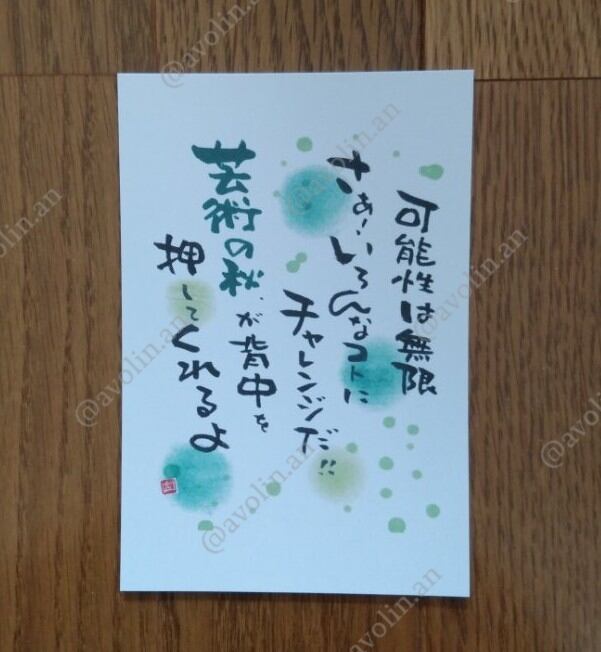 可能性は無限
さあ!いろんなコトに
チャレンジだ!!
芸術の秋が背中を
押してくれるよ
@avolin.an
@avolin.an
@avolin.an
@avolin.an
@avolin.an
@avolin.an
@avolin.an
@avolin.an